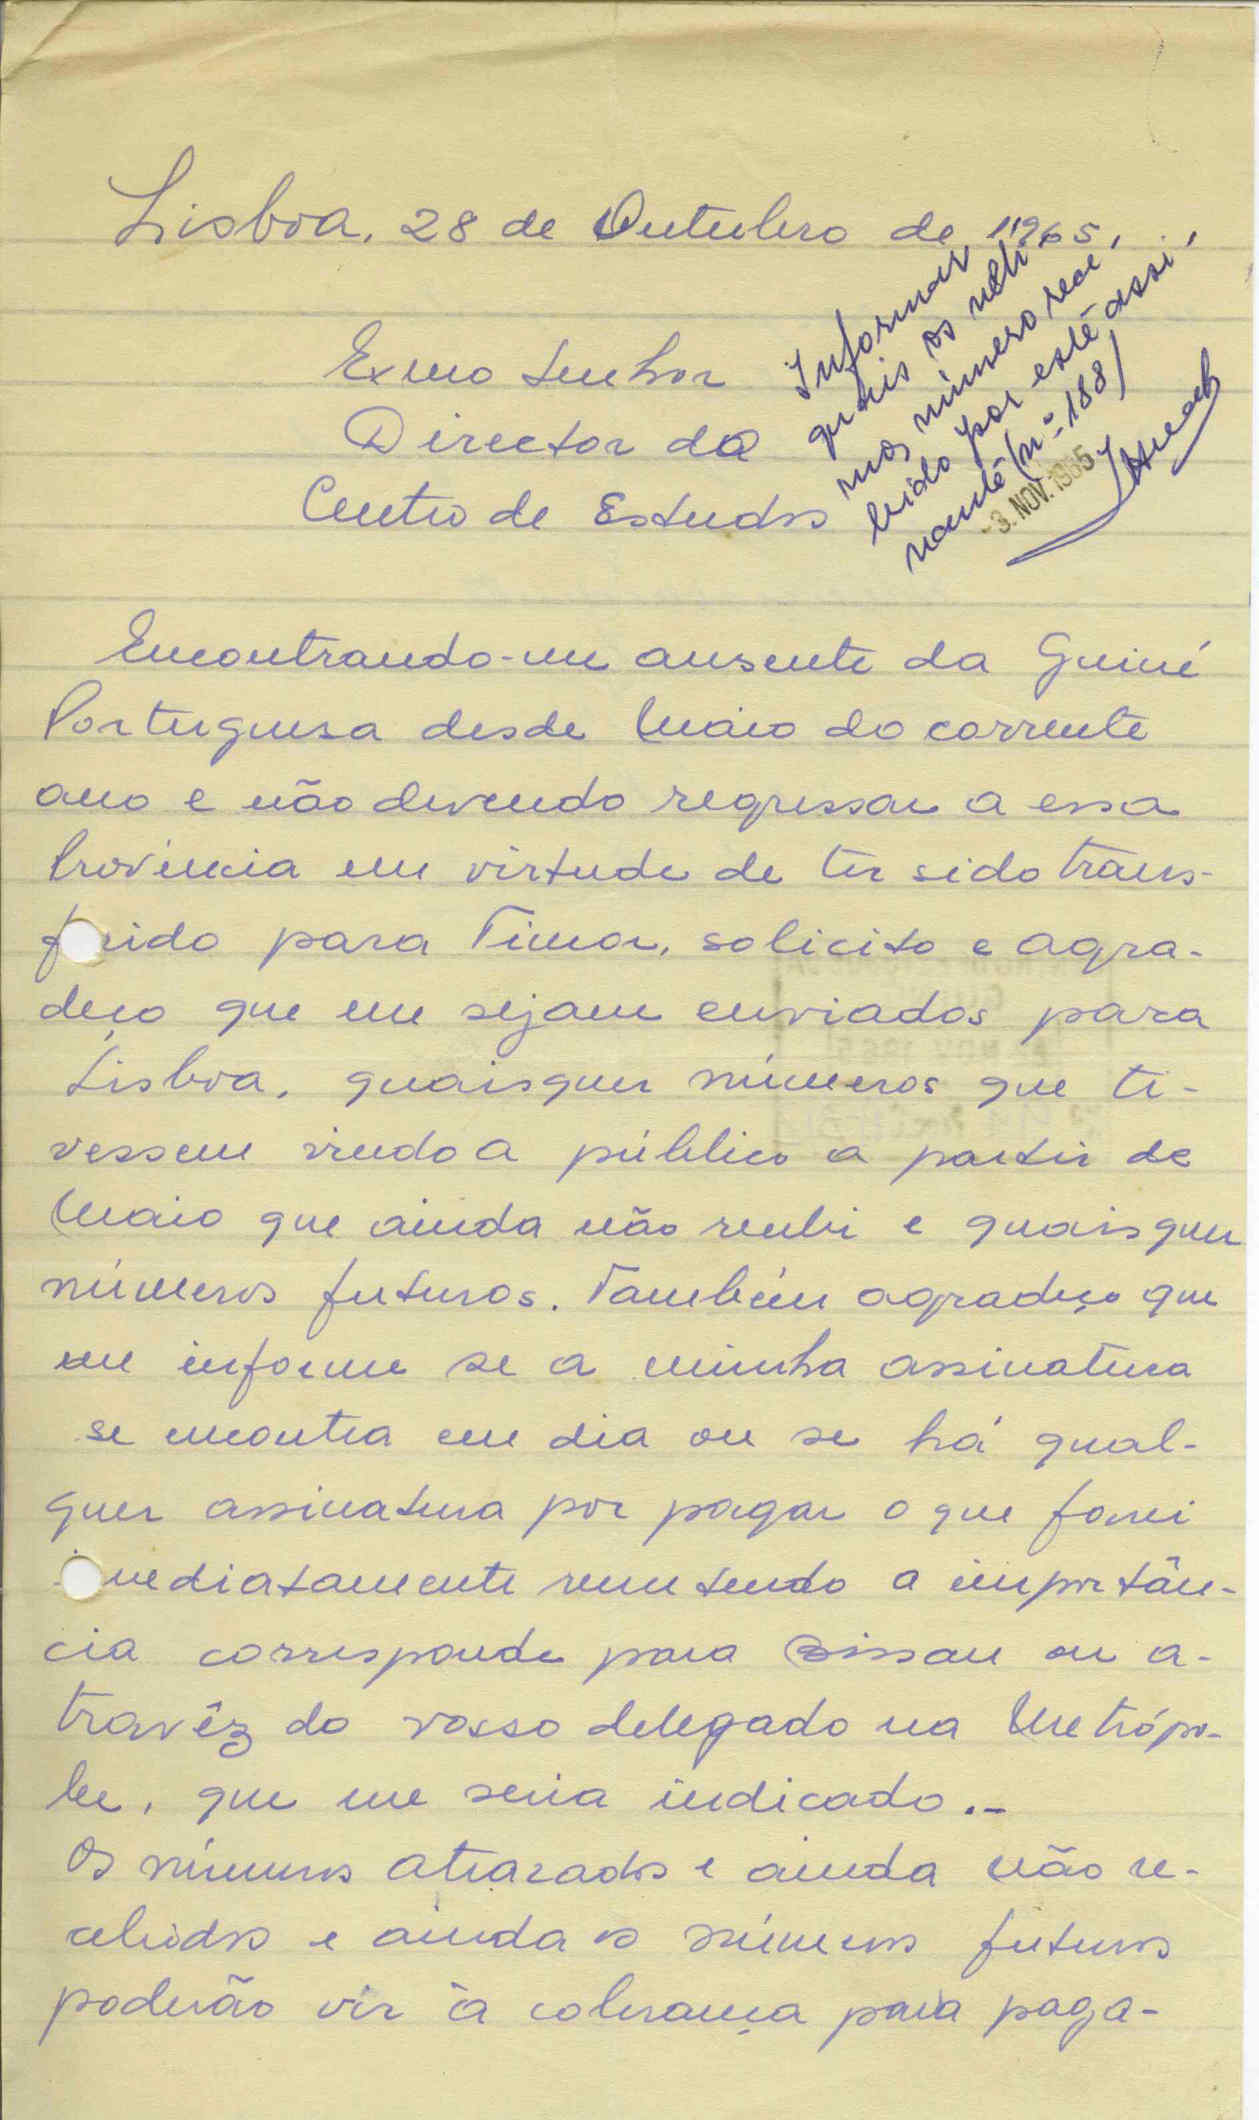 Lisboa, 28 de Outubro de 1965.
Exmo Senhor
Director do
Centro de Estudos
Informar
quais os ulti
mos número rece
bido por este assi
nante (nº 188)
-3. NOV. 1965
Encontrando-me ausente da Guiné
Portuguesa desde Maio do corrente
ano e não devendo regressar a essa
Província em virtude de ter sido trans-
ferido para Timor, solicito e agra-
deço que me sejam enviados para
Lisboa, quaisquer números que ti-
vessem vindo a público a partir de
Maio que ainda não recebi e quaisquer
números futuros. Também agradeço que
me informe se a minha assinatura
se encontra em dia ou se há qual-
quer assinatura por pagar o que farei
imediatamente remetendo a importân-
cia corresponde para Bissau ou a-
travêz do vosso delegado na Metrópo-
le, que me seria indicado.-
Os números atrazados e ainda não re-
cebidos e ainda os números futuros
poderão vir à cobrança para paga-